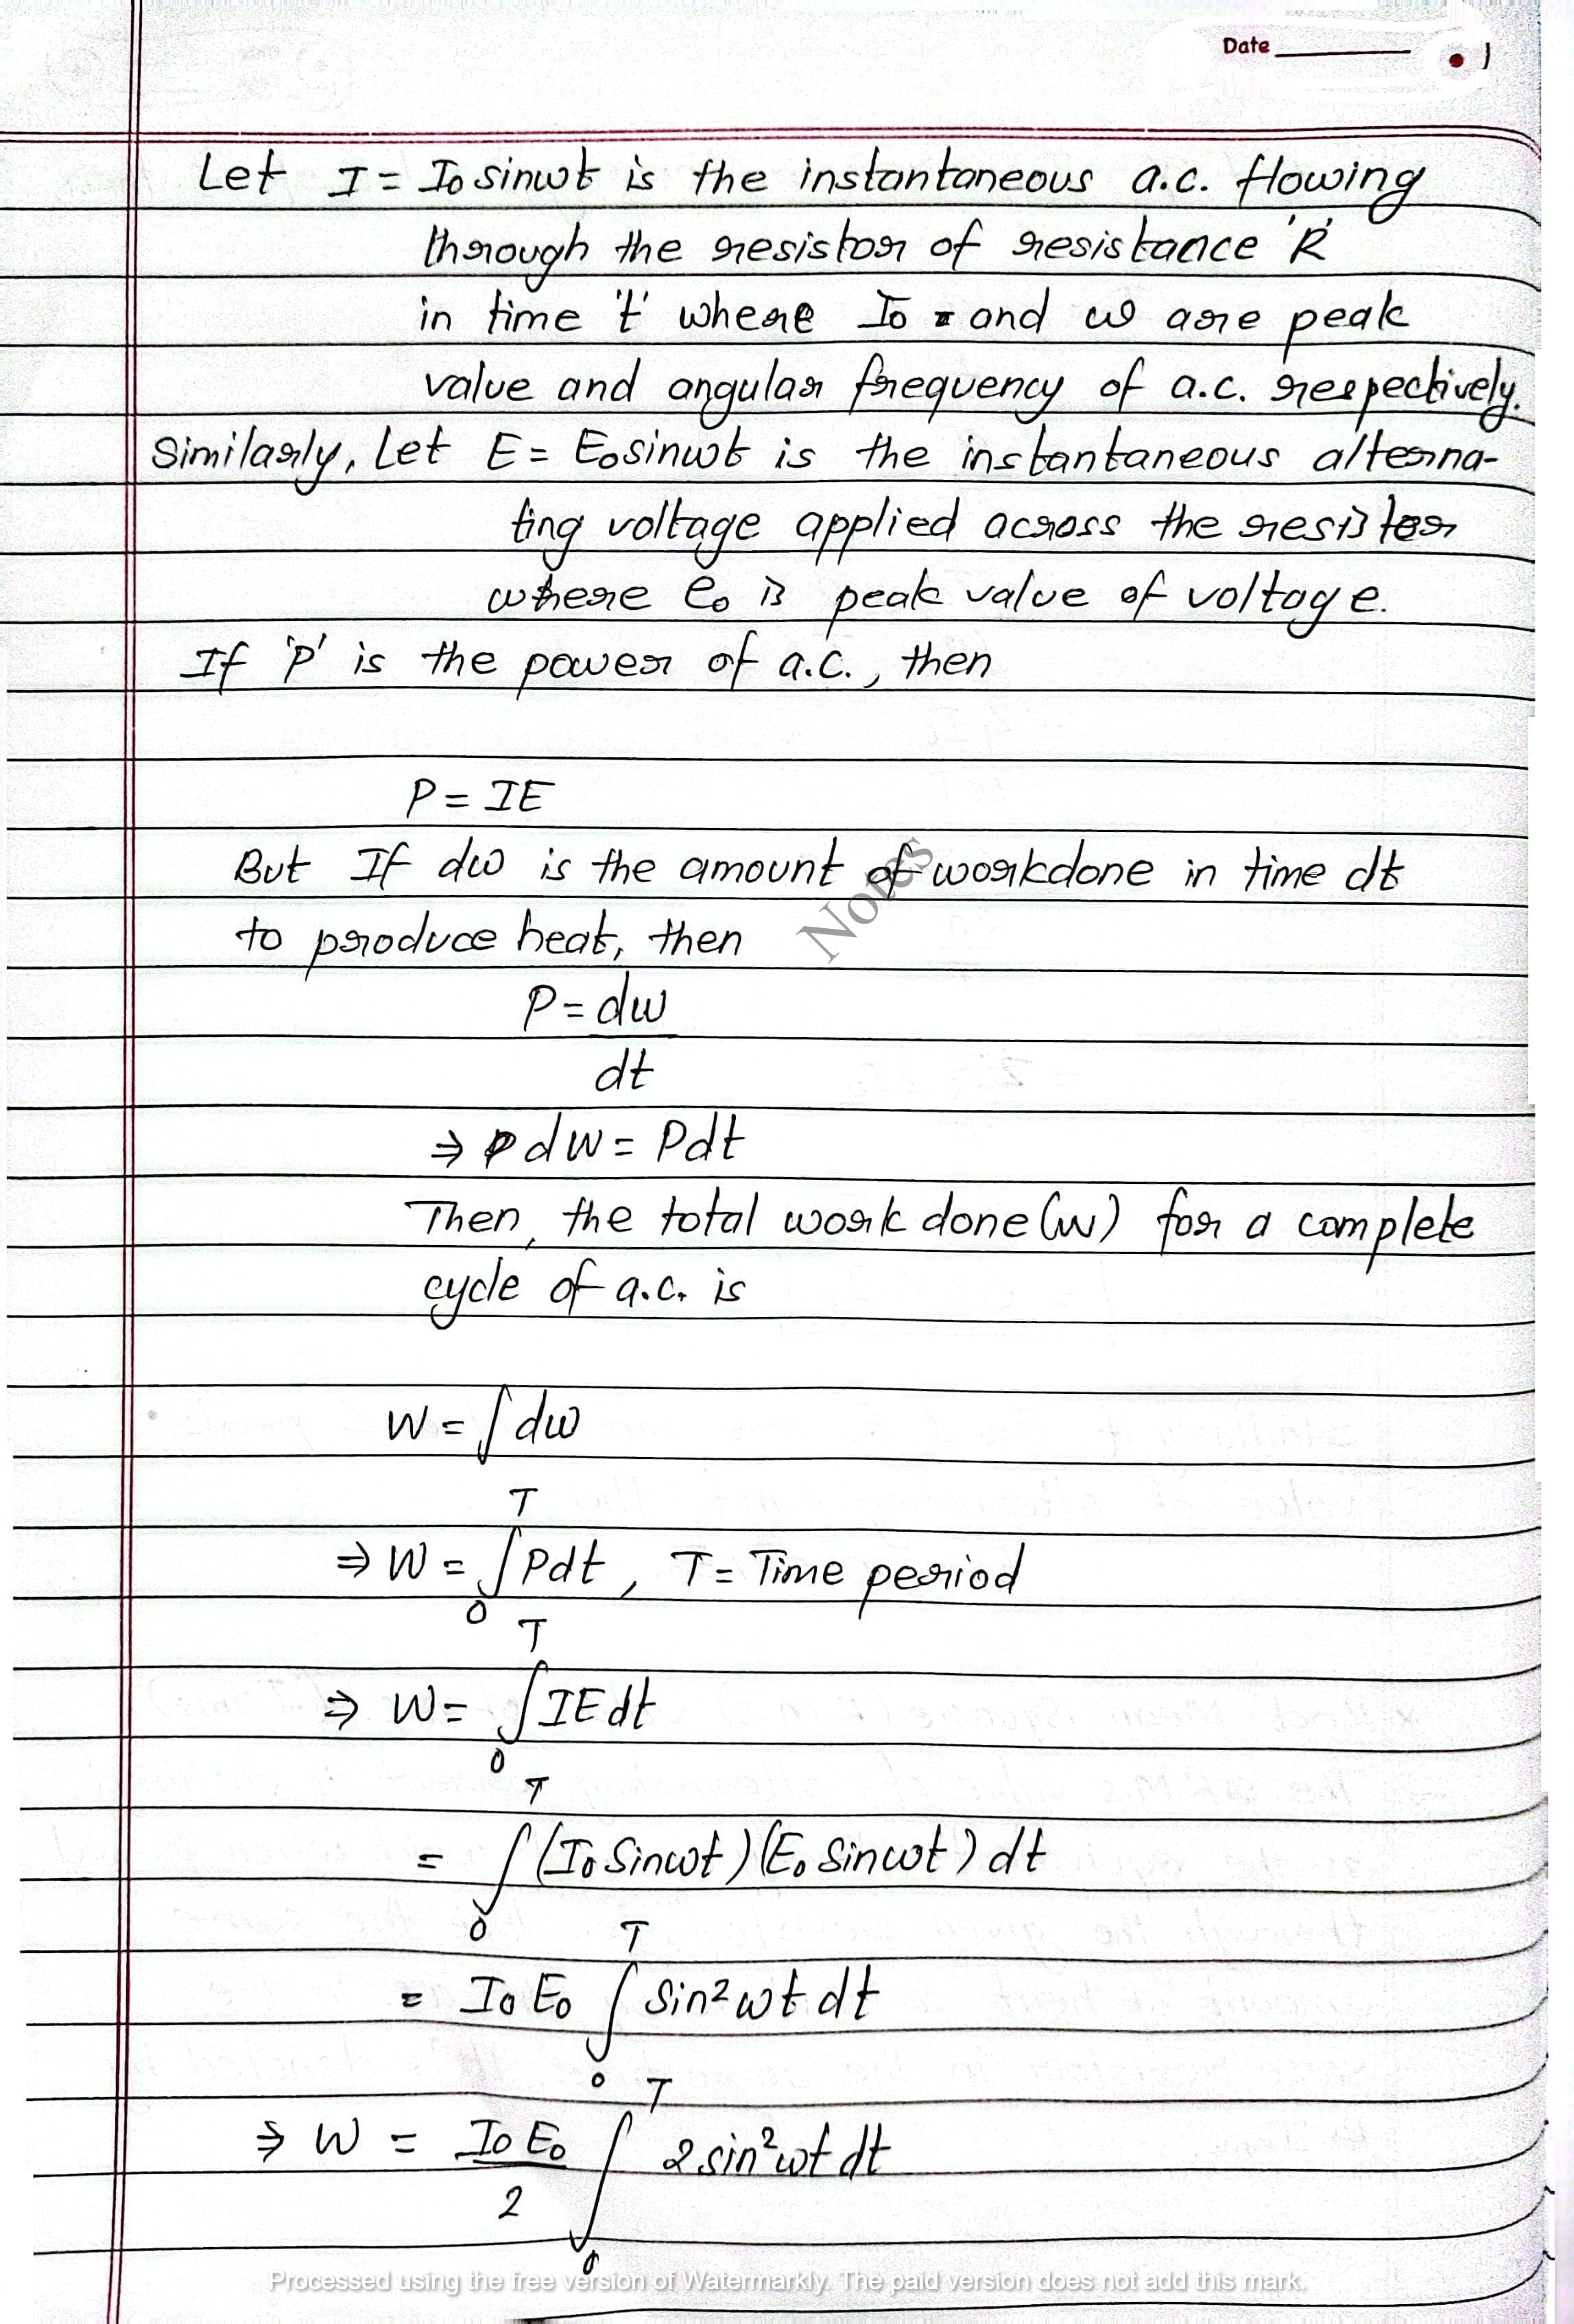 Date
Let I = I₀ sinωt is the instantaneous a.c. flowing
through the resistor of resistance 'R'
in time 't' where I₀ and ω are peak
value and angular frequency of a.c. respectively.
Similarly, Let E = E₀sinωt is the instantaneous alterna-
ting voltage applied across the resistor
where e₀ is peak value of voltage.
If 'P' is the power of a.c., then
P = IE
But If dw is the amount of workdone in time dt
to produce heat, then
Notes
P = dw
dt
⇒ dW = Pdt
Then, the total work done (w) for a complete
cycle of a.c. is
W = ∫dw
T
⇒ W = ∫Pdt, T = Time period
0
T
⇒ W = ∫IEdt
0
T
= ∫(I₀ Sinωt)(E₀ Sinωt) dt
0
T
= I₀ E₀ ∫ Sin²ωt dt
0
T
⇒ W = I₀ E₀ ∫ 2 sin²ωt dt
2
0
Processed using the free version of Watermarkly. The paid version does not add this mark.